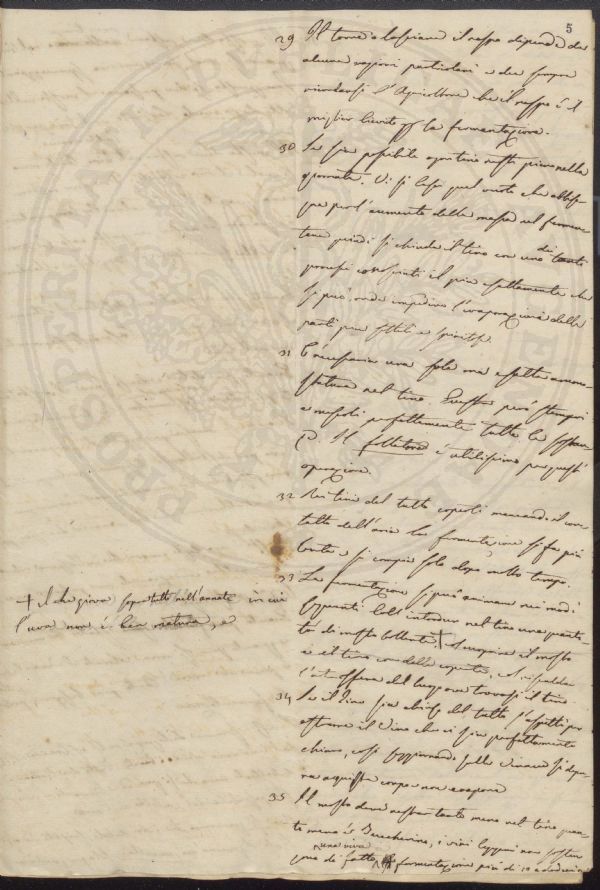 5
29 Il torre o lasciare il raspo dipende da
alcune ragioni particolari e dee sempre
ricordarsi l'Agricoltore che il raspo è il
miglior lievito per la fermentazione.
30 Se sia possibile ogni tino resti pieno nella
giornata. Vi si lasci quel vuoto che abbiso
gna per l'aumento della massa nel fermen
tare quindi si chiuda il tino con uno di tanti
processi conosciuti il più esattamente che
si può, onde impedire l'evaporazione delle
parti più sottili e spiritose.
31 È necessaria una sola ma esatta ammo
statura nel tino. Questa però stemperi
e mescoli perfettamente tutte le
Il follatore è utilissimo per questa
operazione.
32 Nei tini del tutto coperti mancando il con
tatto dell'aria la fermentazione si fa più
lenta e si compie solo dopo molto tempo.
33 La fermentazione si può animare nei modi
seguenti Coll'introdur nel tino una quanti
tà di mosto bollente, + col coprire il mosto
e il tino con delle coperte, col riscaldar
l'atmosfera del luogo ove trovasi il tino.
+ il che giova sopra tutto nell'annate in cui
l'uva non è ben matura, e
34 Se il tino sia chiuso del tutto s'aspetti per
estrarre il Vino che ei sia perfettamente
chiaro, così soggiornando sulle vinacce si depu
ra acquista corpo e non
35 Il mosto deve restar tanto meno nel tino quan
to meno è Zuccherino, i vini leggeri non sosten
una viva
gono di fatto fermentazione più di 10 a dodici